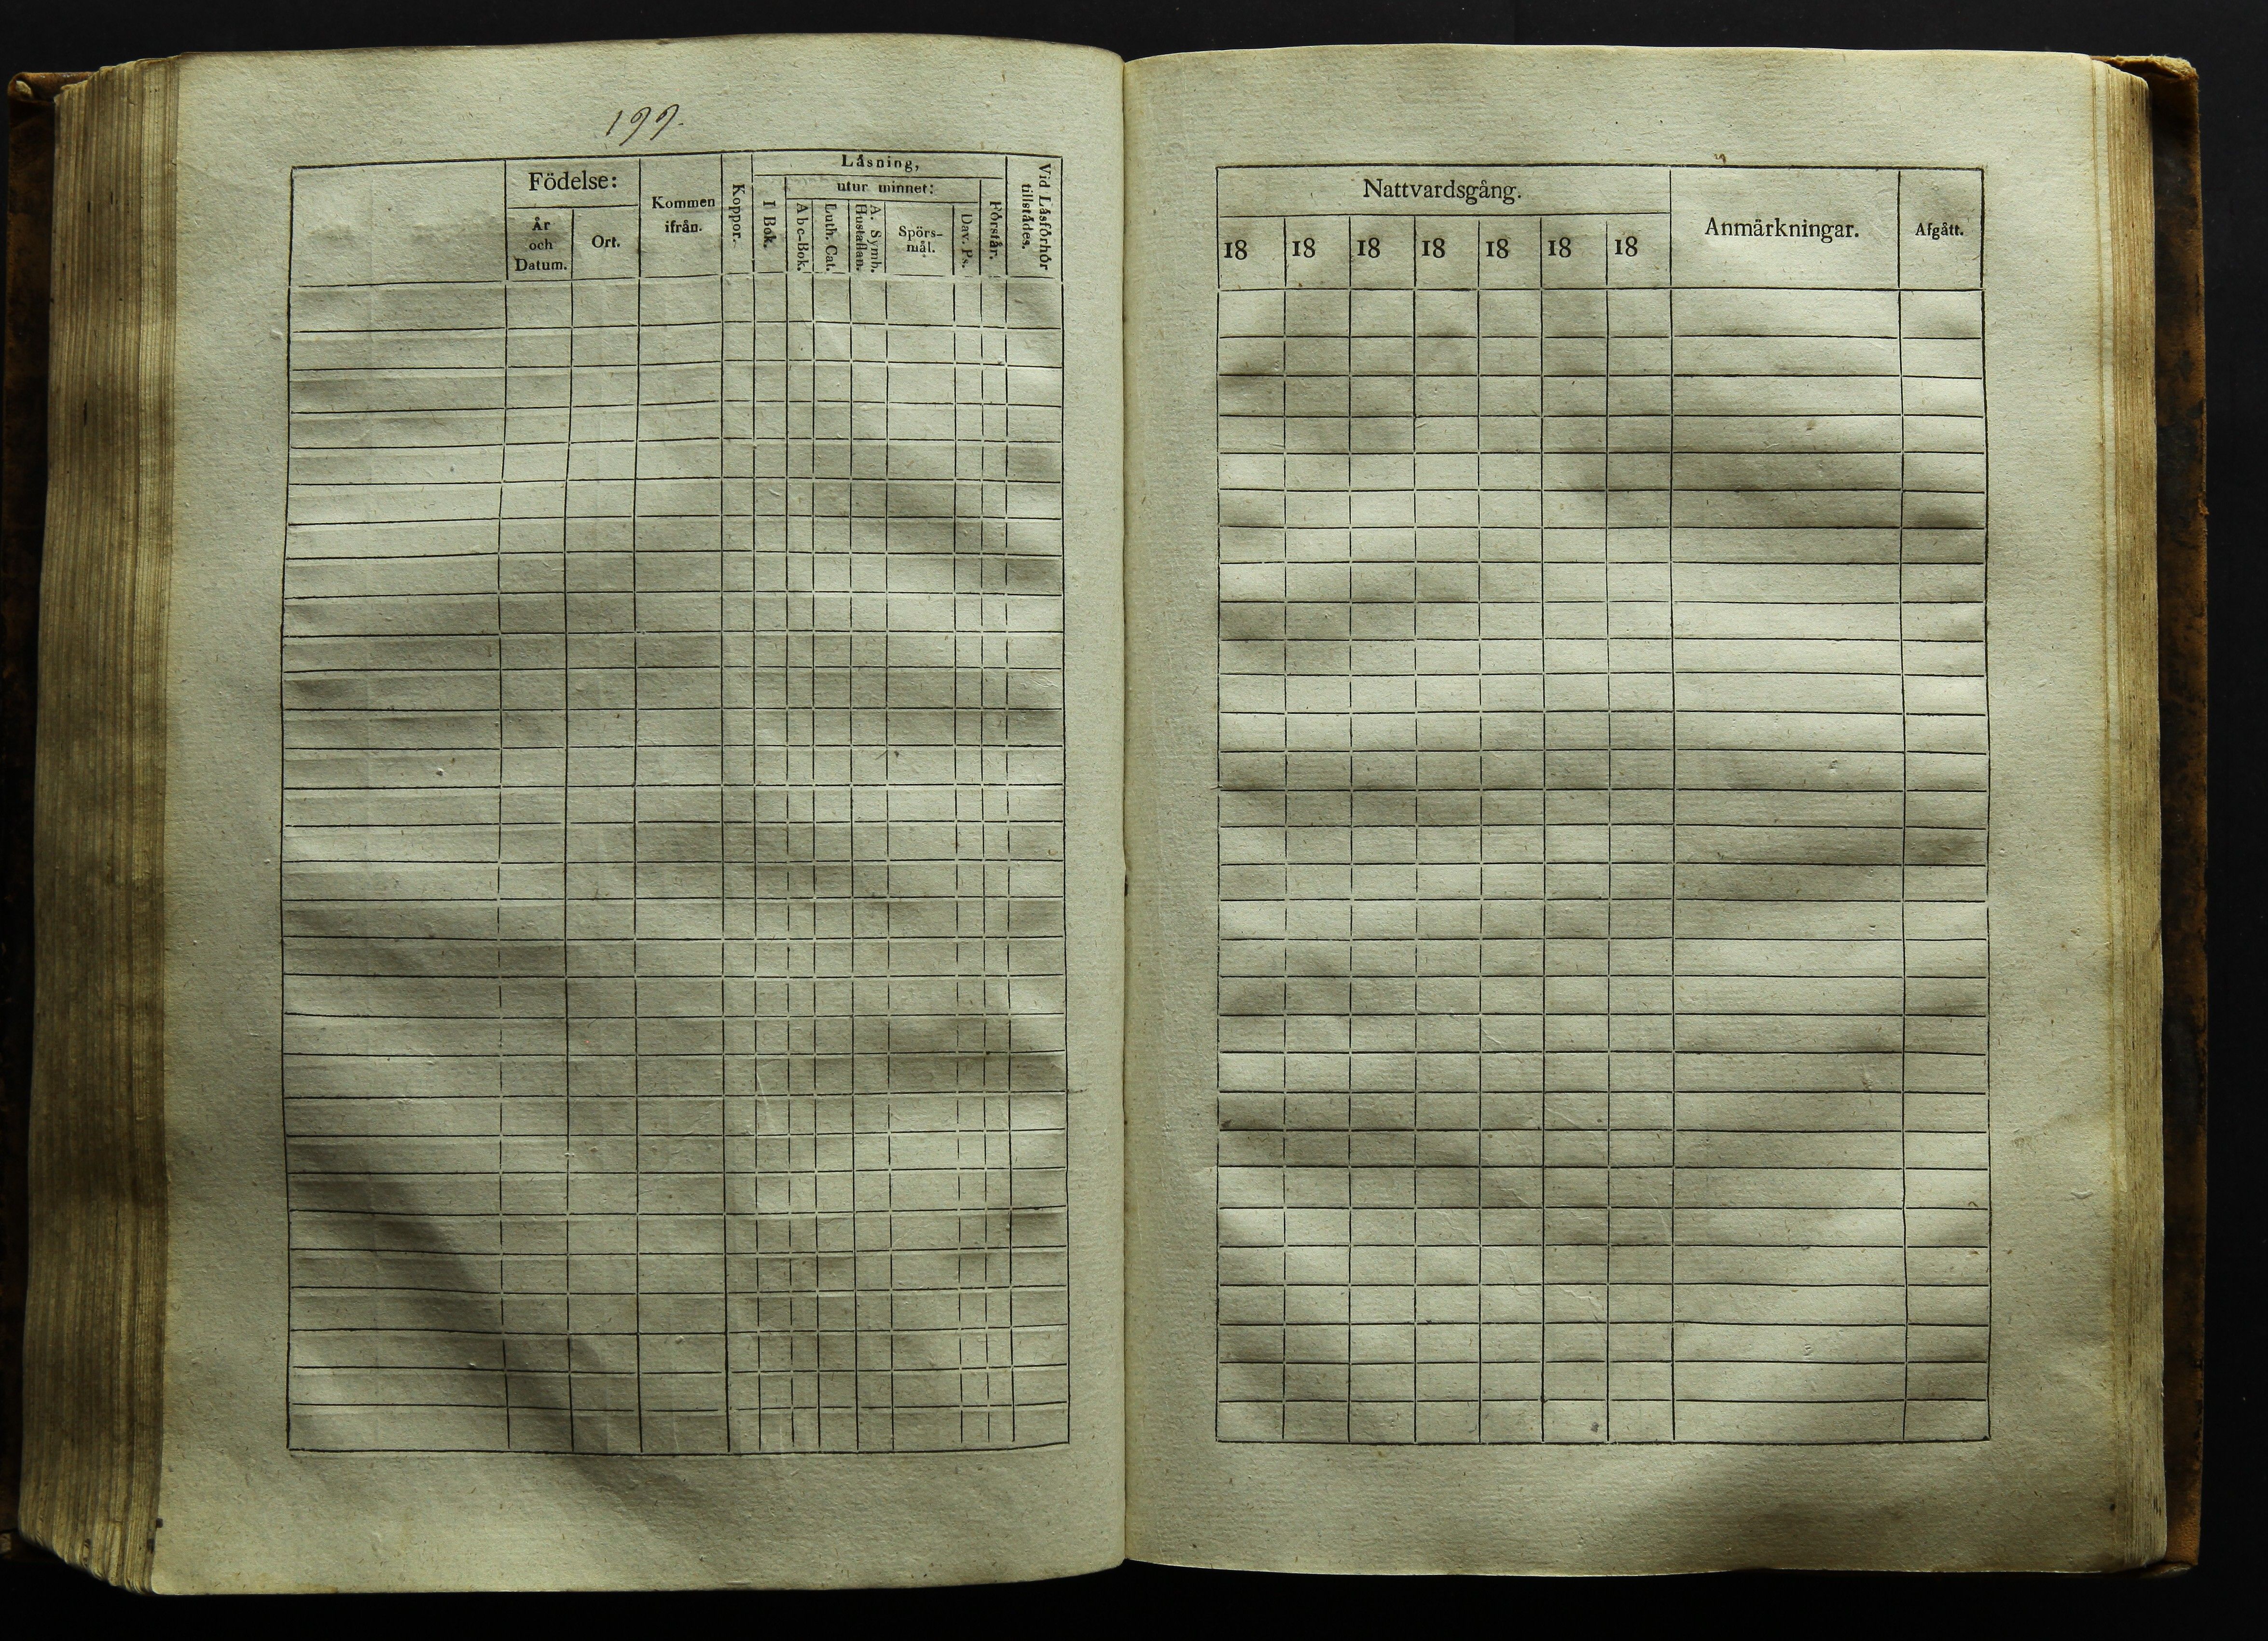 199.
Födelse:
År
och
Datum.
Ort.
Kommen
ifrån.
Koppor.
Läsning,
I Bok.
utur minnet:
Abc-Bok.
Luth. Cat.
A. Symb.
Hustaflan.
Spörs-
mål.
Dav. Ps.
Förstår.
Vid Läsförhör
tillstädes.
Nattvardsgång.
18 18 18 18 18 18 18
Anmärkningar.
Afgått.